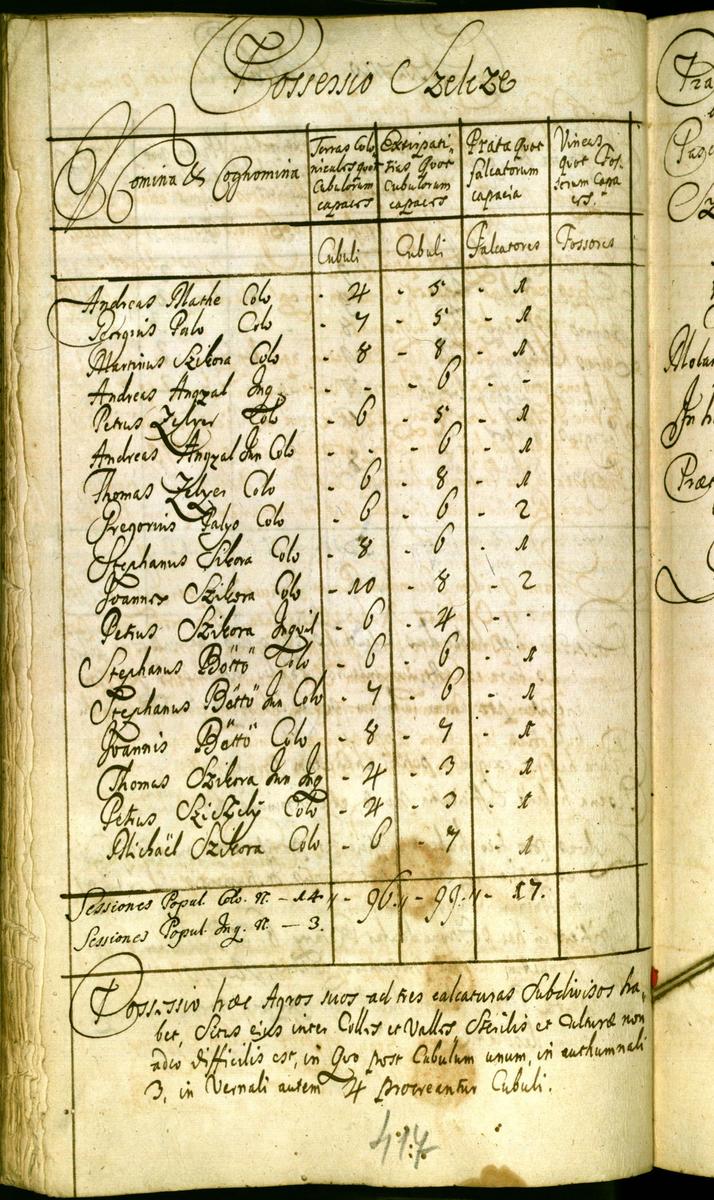 Possessio Szelcze
Nomina & Cognomina | Terras Colonicales quot Cubulorum capaces | Extirpatitias quot Cubulorum capaces | Prata quot falcatorum capacia | Vineas quot Fossorum capaces.
Cubuli | Cubuli | Falcatores | Fossores
Andreas Mathe Colo - 4 - 5 - 1
Georgius Palo Colo - 7 - 5 - 1
Martinus Szikora Colo - 8 - 8 - 1
Andreas Angyal Inq. - - - 6 - -
Petrus Zelyer Colo - 6 - 5 - 1
Andreas Angyal Jun Colo - - - 6 - 1
Thomas Zelyer Colo - 6 - 8 - 1
Gregorius Palyo Colo - 6 - 6 - 2
Stephanus Sikora Colo - 8 - 6 - 1
Joannes Szikora Colo - 10 - 8 - 2
Petrus Szikora Inquil - 6 - 4 - -
Stephanus Böttö Colo - 6 - 6 - 1
Stephanus Böttö Jun Colo - 7 - 6 - 1
Joannis Böttö Colo - 8 - 7 - 1
Thomas Szikora Jun Inq - 4 - 3 - 1
Petrus Sziszely Colo - 4 - 3 - 1
Michaël Szikora Colo - 6 - 7 - 1
Sessiones Popul. Colo. N. - 14 - 96 - 99 - 17.
Sessiones Popul. Inq. N. - 3.
Possessio hæc Agros suos ad tres calcaturas Subdivisos ha-
bet, Situs ejus inter Colles et Valles Sterilis et Culturæ non
adeo difficilis est, in Quo post Cubulum unum, in authumnali
3, in Vernali autem 4 procreantur Cubuli.
417